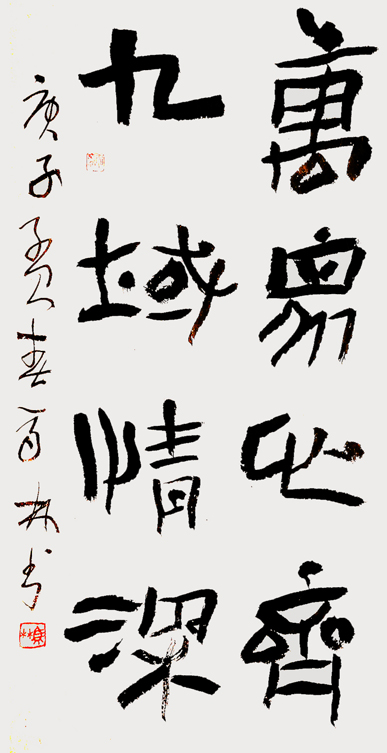 萬眾心齊
九域情深
庚子孟春林书